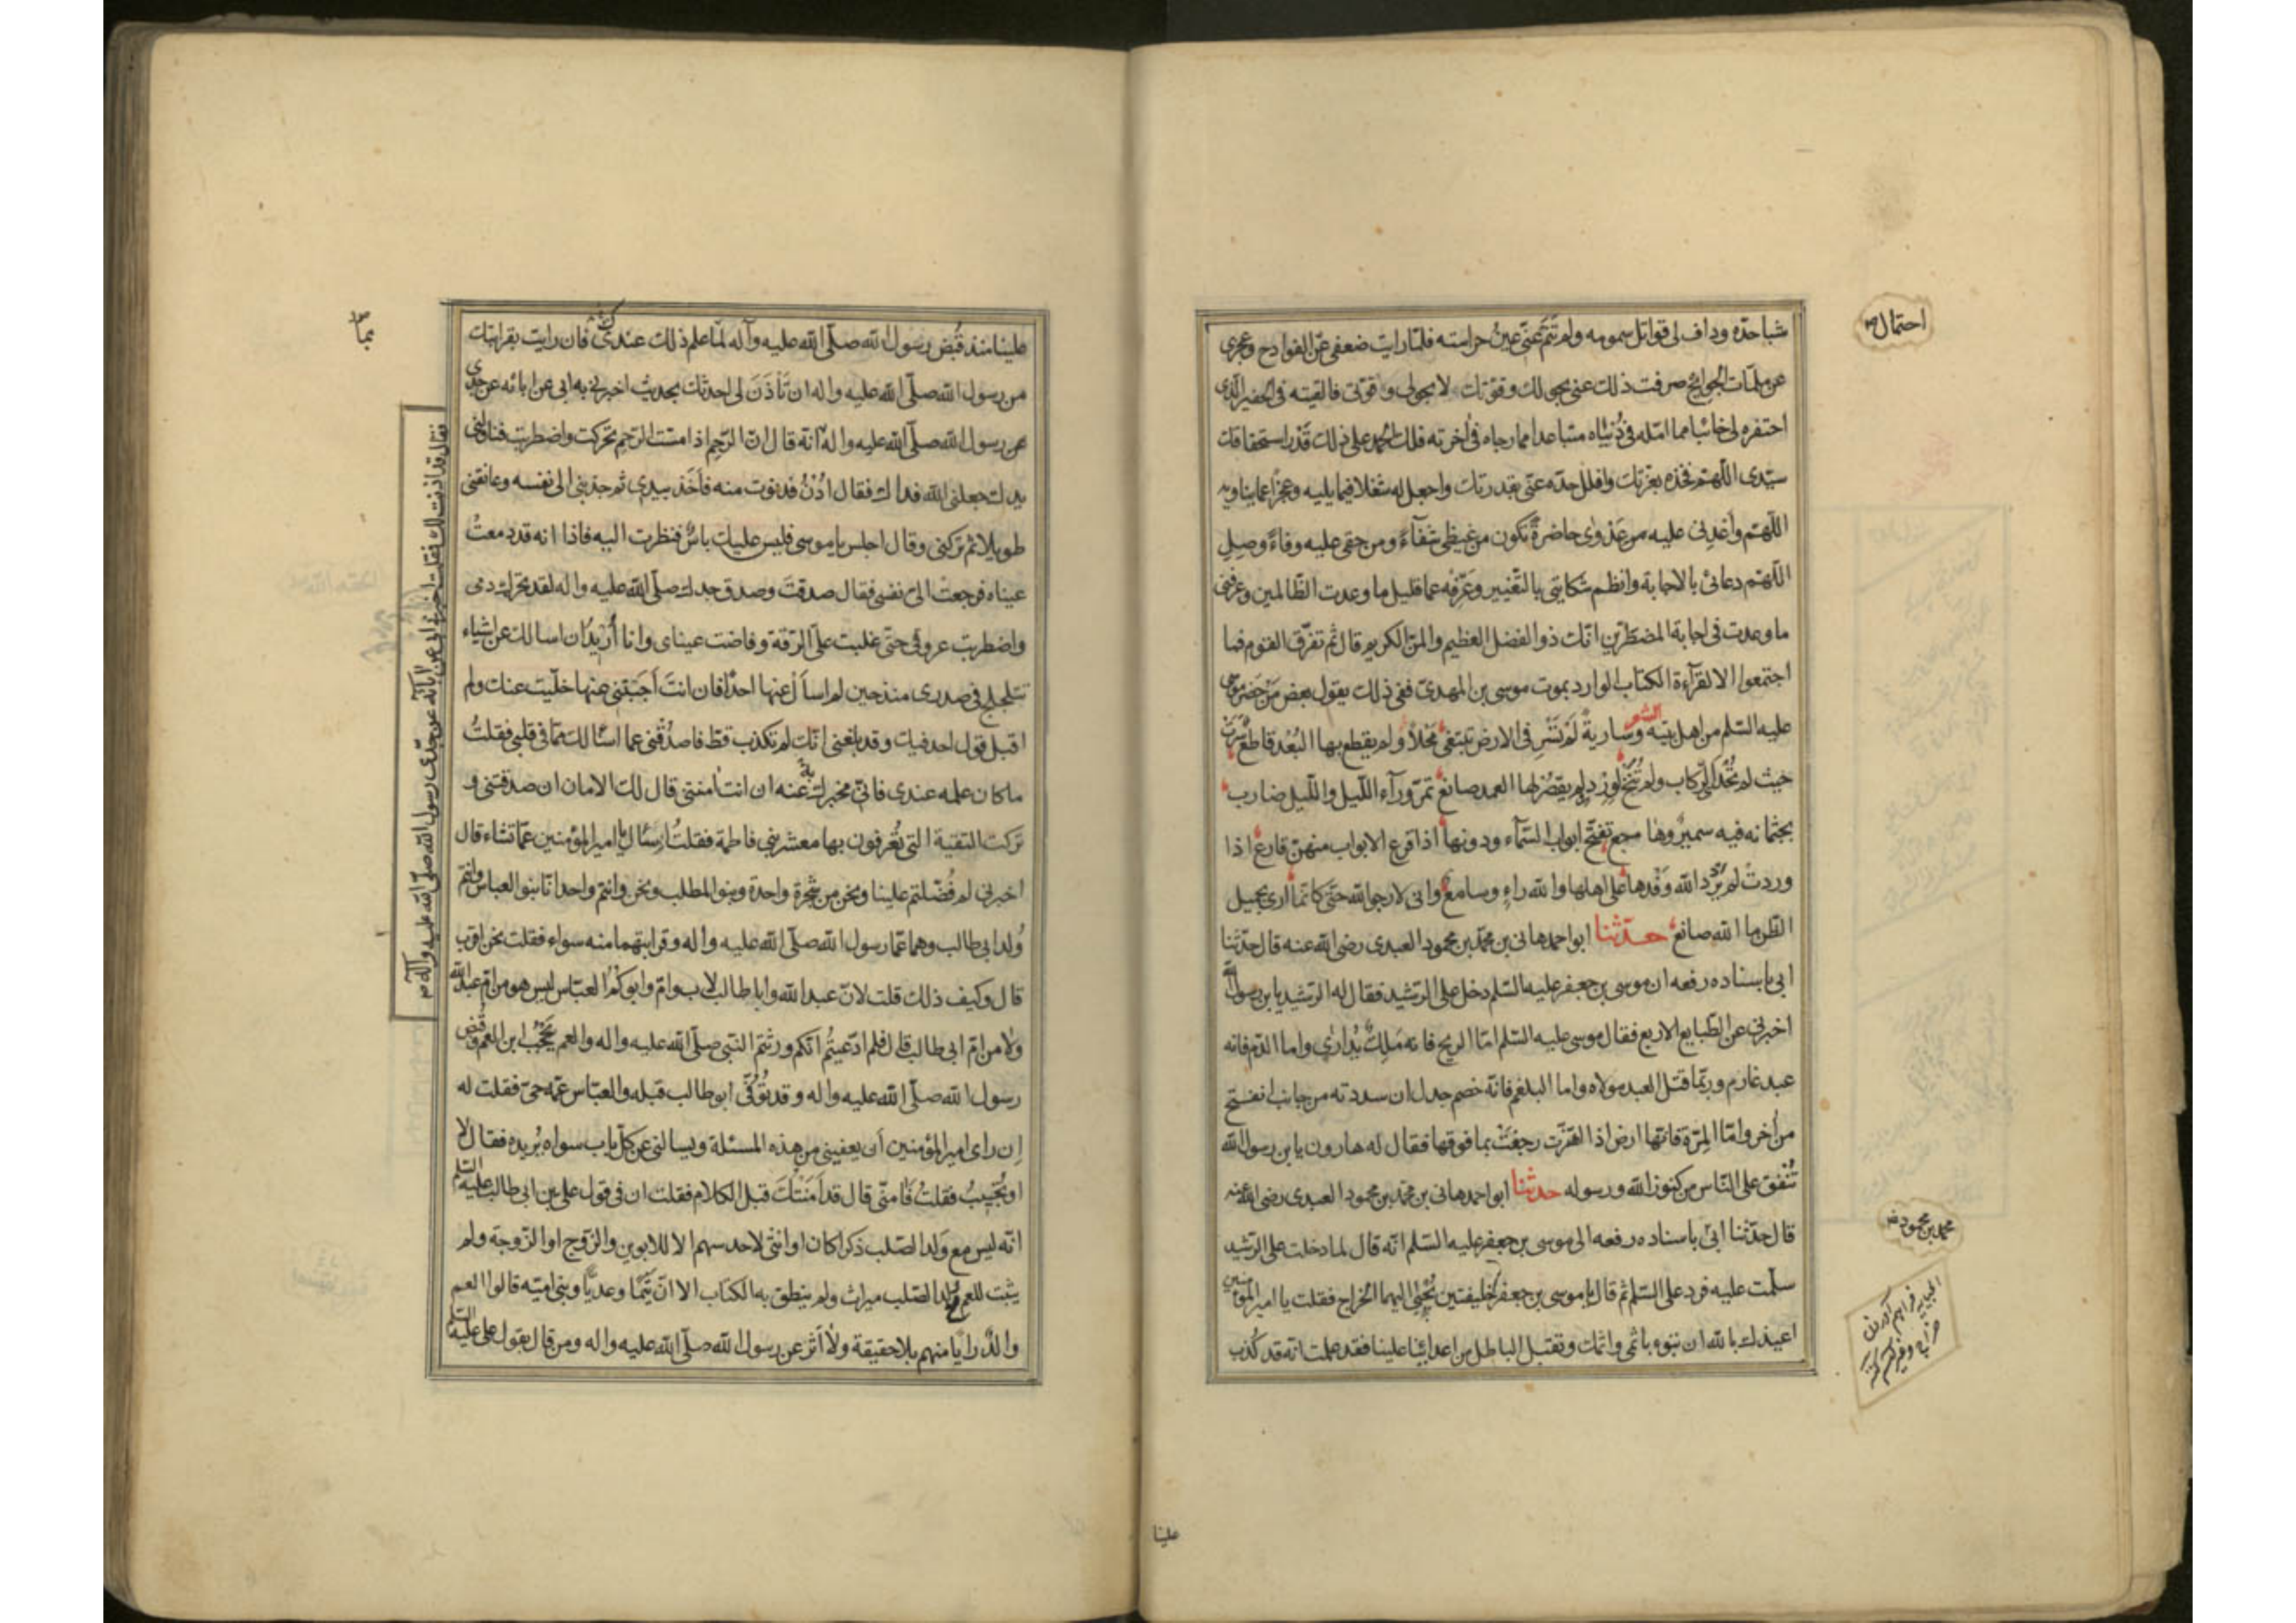 شباحدّه وداف لى قواتل سمومه ولم تنم عنّى عين حراسته فلمّا رايت ضعفى عن الفوادح وعجزى
عن ملمّات الجوايح صرفت ذلك عنى بحولك وقوّتك لا بحولى و قوّتى فالقيته فى الحفير الّذى
احتفره لى خائبا مما امّله فى دُنياه متباعدا مما رجاه فى اخرته فلك الحمد على ذلك قدر استحقاقك
سيّدى اللّهم فخذه بعزّتك وافلل حدّه عنّى بقدرتك واجعل له شغلا فيما يليه وعجزا عما يناويه
اللّهم وأعدنى عليه من عَدْوى حاضرةً تكون من غيظى شفآءً ومن حقى عليه وفاءً وصِلِ
اللّهم دعائى بالاجابة وانظم شكايتى بالتّغيير وعَرّفه عما قليل ما وعدت الظّالمين وعرفنى
ما وعدت فى اجابة المضطرّين انّك ذو الفضل العظيم والمنّ الكريم قال ثم تفرّق القوم فما
اجتمعوا الا لقرآءة الكتاب الوارد بموت موسى بن المهدىّ ففى ذلك يقول بعض مَنْ حَضَر موسى
عليه السّلم من اهل بيته الشعر وسارية لَمْ تَسْرِ فى الارض تبتغى محَلاًّ ولم يقطع بها البُعْد قاطع سَرَتْ
حيث لم تُحْدَ الرّكاب ولم تُنَخْ لوِرْدٍ ولم يقصُر لها العبد صانع تمرّ ورآء اللّيل واللّيل ضارب
بجثمانه فيه سميرٌ وهاجع تفتّح ابواب السّمآء ودونها اذا قرع الابواب منهنّ قارع اذا
وردتْ لم يَرْدُد الله وَفْدها على اهلها والله راءٍ وسامع وانى لارجوا لله حتّى كانّما ارى بجميل
الظن ما الله صانع حدّثنا ابو احمد هانى بن محمّد بن محمود العبدى رضى الله عنه قال حدّثنا
ابى باسناده رفعه ان موسى بن جعفر عليه السّلم دخل على الرّشيد فقال له الرّشيد يا بن رسول الله
اخبرنى عن الطّبايع الاربع فقال موسى عليه السّلم امّا الريح فانه مَلِكٌ يُدارٰى واما الدّم فانه
عبد غارم وربّما قتل العبد مولاه واما البلغم فانّه خصم جدل ان سددته من جانب انفتح
من اٰخر وامّا المِرّة فانّها ارض اذا اهتزّت رجفَتْ بما فوقها فقال له هارون يا بن رسول الله
تُنْفق على النّاس من كنوز الله ورسوله حدثنا ابو احمد هانى بن محمّد بن محمود العبدى رضى الله عنه
قال حدّثنا ابى باسناده رفعه الى موسى بن جعفر عليه السّلم انّه قال لما دخلت على الرّشيد
سلّمت عليه فرد علىّ السّلم ثم قال يا موسى بن جعفر خليفتين يُجْبٰى اليهما الخراج فقلت يا امير المؤمنين
اعيذك بالله ان تبوء باثمى واثمك وتقبل الباطل من اعدائنا علينا فقد علمت انّه قد كُذب
احتمال
محمد بن محمود
فراهم آوردن
علينا
علينا منذ قُبض رسول الله صلّى الله عليه وآله لمّا علم ذلك عندك فان رايت بقرابتك
من رسول الله صلّى الله عليه واله ان تأذَنَ لى احدّثك بحديث اخبرنى به ابى عن ابائه عن جدى
عن رسول الله صلّى الله عليه واله انّه قال انّ الرّحِم اذا مسّت الرّحِم تحركت واضطربت فناولنى
يدك جعلنى الله فداك فقال ادْنُ فدنوت منه فأخذ بيدى ثم جذبنى الى نفسه وعانقنى
طويلا ثم تركنى وقال اجلس يا موسى فليس عليك باسٌ فنظرت اليه فاذا انه قد دمعتْ
عيناه فرجعت الىّ نفسى فقال صدقتَ وصدق جدك صلّى الله عليه واله لقد تحرّك دمى
واضطربت عروقى حتّى غلبت علىّ الرّقة وفاضت عيناى وانا أُرِيدُ ان اسالك عن اشياء
تتلجلج فى صدرى منذ حين لم اسأل عنها احدًا فان انتَ أجَبْتنى عنها خلّيت عنك ولم
اقبل قول احد فيك وقد بلغنى انّك لم تكذب قطّ فاصدُقنى عما اسئالك ممّا فى قلبى فقلتُ
ما كان علمه عندى فانّى مخبرك به عنه ان انت امنتنى قال لك الامان ان صدقتنى و
تركت التقية التى تُعْرفون بها معشر بنى فاطمة فقلتُ ليسئال امير المؤمنين عمّا تشاء قال
اخبرنى لم فُضّلتم علينا ونحن من شجرة واحدة وبنو المطلب ونحن وانتم واحد انا بنوا العباس وانتم
وُلد ابى طالب وهما عمّا رسول الله صلّى الله عليه واله وقرابتهما منه سواء فقلت نحن اقرب
قال وكيف ذلك قلت لانّ عبد الله وابا طالب لاب وامّ وابوكُمْ العبّاس ليس هو من امّ عبد الله
ولا من امّ ابى طالب قال فلم ادّعيتُم انّكم ورثتم النّبى صلّى الله عليه واله والعم يَحْجُب ابن العم وقُبض
رسول الله صلّى الله عليه واله وقد تُوُفّى ابو طالب قبله والعبّاس عمّه حىّ فقلت له
إن راى امير المؤمنين أن يعفينى من هذه المسئلة ويسالنى عن كلّ باب سواه يُريده فقال لا
او تُجيبُ فقلتُ فَامنّى قال قد اٰمَنْتك قبل الكلام فقلت ان فى قول على بن ابى طالب عليه السّلم
انّه ليس مع وَلد الصّلب ذكرا كان او انثى لاحد سهم الا للابوين والزّوج او الزّوجة ولم
يثبت للعم مع ولد الصّلب ميراث ولم ينطق به الكتاب الا انّ تَيْمًا وعديًّا وبنى اميّه قالوا العم
والد رأيا منهم بلا حقيقة ولا أثر عن رسول الله صلّى الله عليه واله ومن قال بقول على عليه السّلم
فقال قد اذنت لك فقلت اخبرنى ابى عن اٰبائه عن جدّى رسول الله صلّى الله عليه وآله